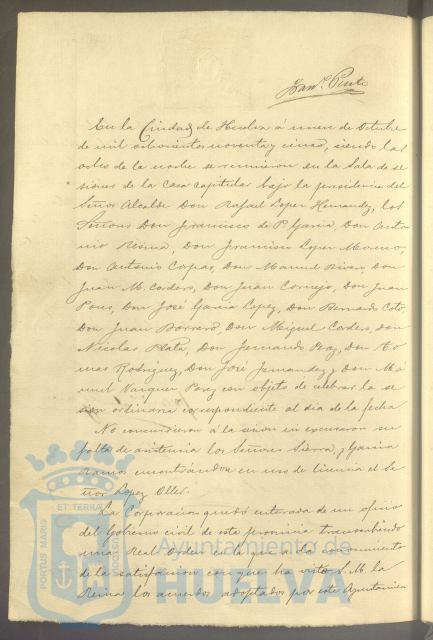 Juan R. Pinto
En la Ciudad de Huelva á nueve de Octubre
de mil ochocientos noventa y cinco, siendo las
ocho de la noche se reunieron en la Sala de se
siones de la Casa Capitular bajo la presidencia del
Señor Alcalde Don Rafael Lopez Hernandez, los
Señores Don Francisco de P. Garcia, Don Anto
nio Resina, Don Francisco Lopez Moreno,
Don Antonio Corpas, Don Manuel Rivas, Don
Juan M. Cordero, Don Juan Cornejo, Don Juan
Pons, Don José Garcia Lopez, Don Bernardo Coto,
Don Juan Borrero, Don Miguel Cordero, Don
Nicolas Plata, Don Fernando Paz, Don To
mas Rodriguez, Don José Fernandez y Don Ma
nuel Vazquez Perez con objeto de celebrar la se
sion ordinaria correspondiente al dia de la fecha
No concurrieron á la sesion excusaron su
falta de asistencia los Señores Sierra, y Garcia
Ramos encontrándose en uso de licencia el Se
ñor Lopez Oller.
La Corporacion quedó enterada de un oficio
del Gobierno civil de esta provincia transcribiendo
una Real Orden en la que se da conocimiento
de la satisfaccion con que ha visto S. M. la
Reina los acuerdos adoptados por este Ayuntamien
PORTUS MARIS ET TERRAE CUSTODIA
Ayuntamiento de
HUELVA